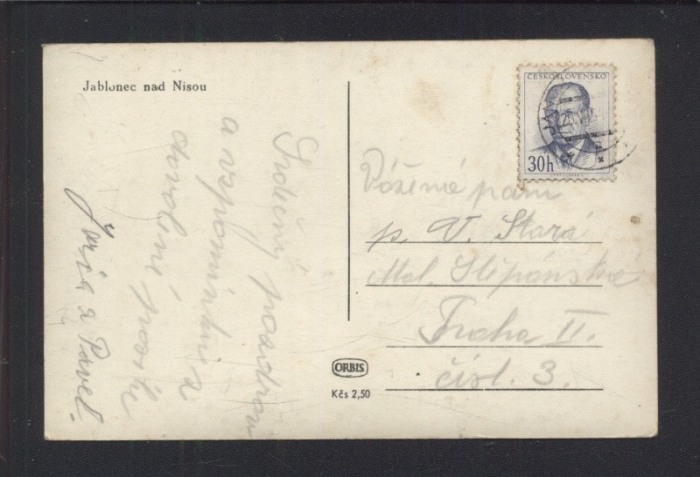 Jablonec nad Nisou
Srdečný pozdrav
a vzpomínku z
dovolené
Jarka a Pavel.
ČESKOSLOVENSKO
30h
Vážená paní
p. V. Stará
Mal. Štěpánská
Praha II.
čísl. 3.
ORBIS
Kčs 2,50